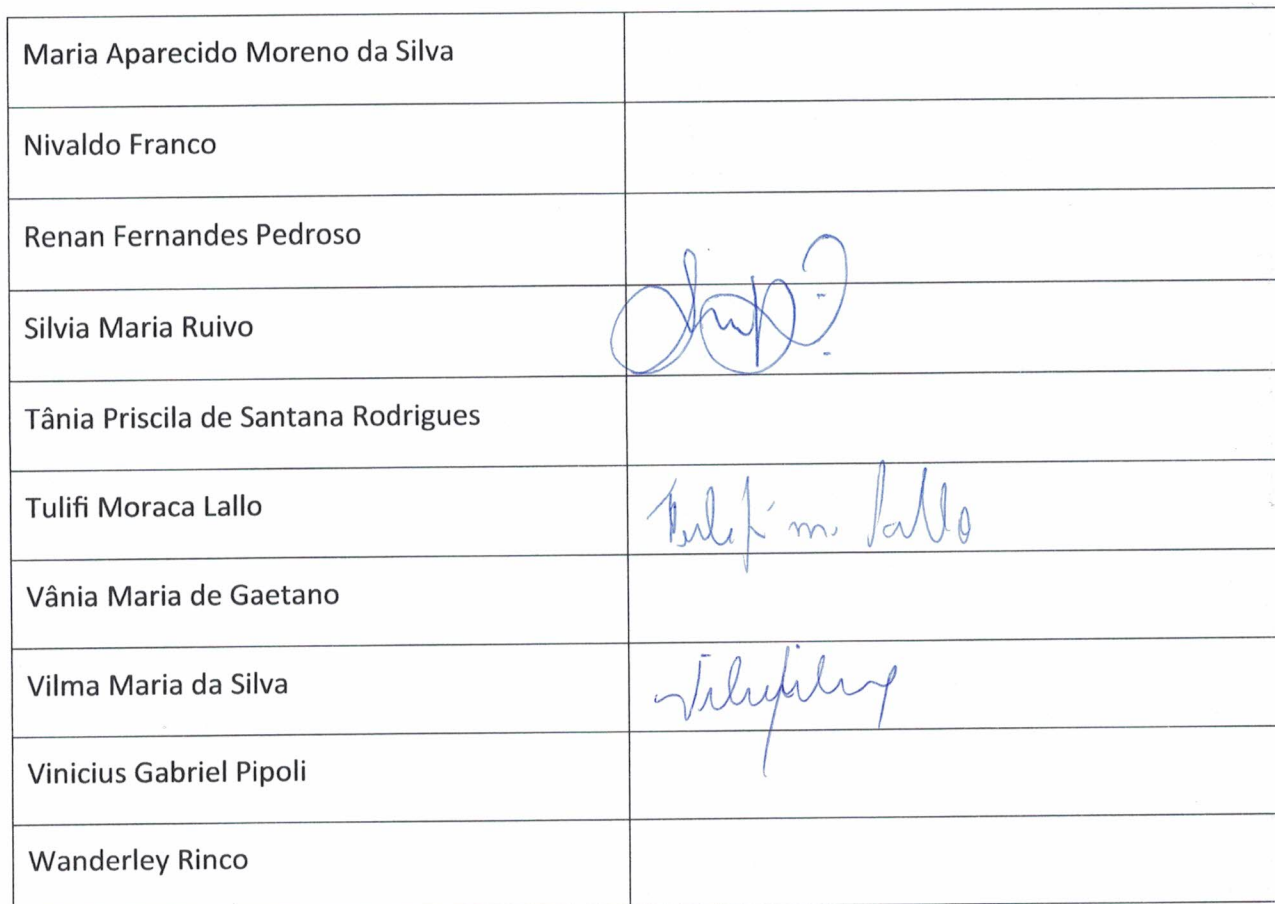 Maria Aparecido Moreno da Silva
Nivaldo Franco
Renan Fernandes Pedroso
Silvia Maria Ruivo
Tânia Priscila de Santana Rodrigues
Tulifi Moraca Lallo
Tulifi m. Lallo
Vânia Maria de Gaetano
Vilma Maria da Silva
Vinicius Gabriel Pipoli
Wanderley Rinco